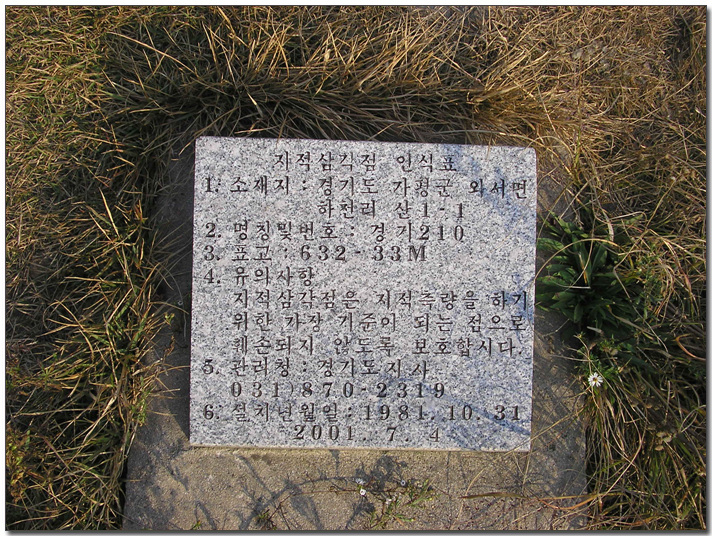 지적삼각점 인식표
1. 소재지 : 경기도 가평군 외서면
하천리 산 1-1
2. 명칭및번호 : 경기210
3. 표고 : 632-33M
4. 유의사항
지적삼각점은 지적측량을 하기
위한 가장 기준이 되는 점으로
훼손되지 않도록 보호합시다.
5. 관리청 : 경기도지사
031)870-2319
6. 설치년월일 : 1981. 10. 31
2001. 7. 4